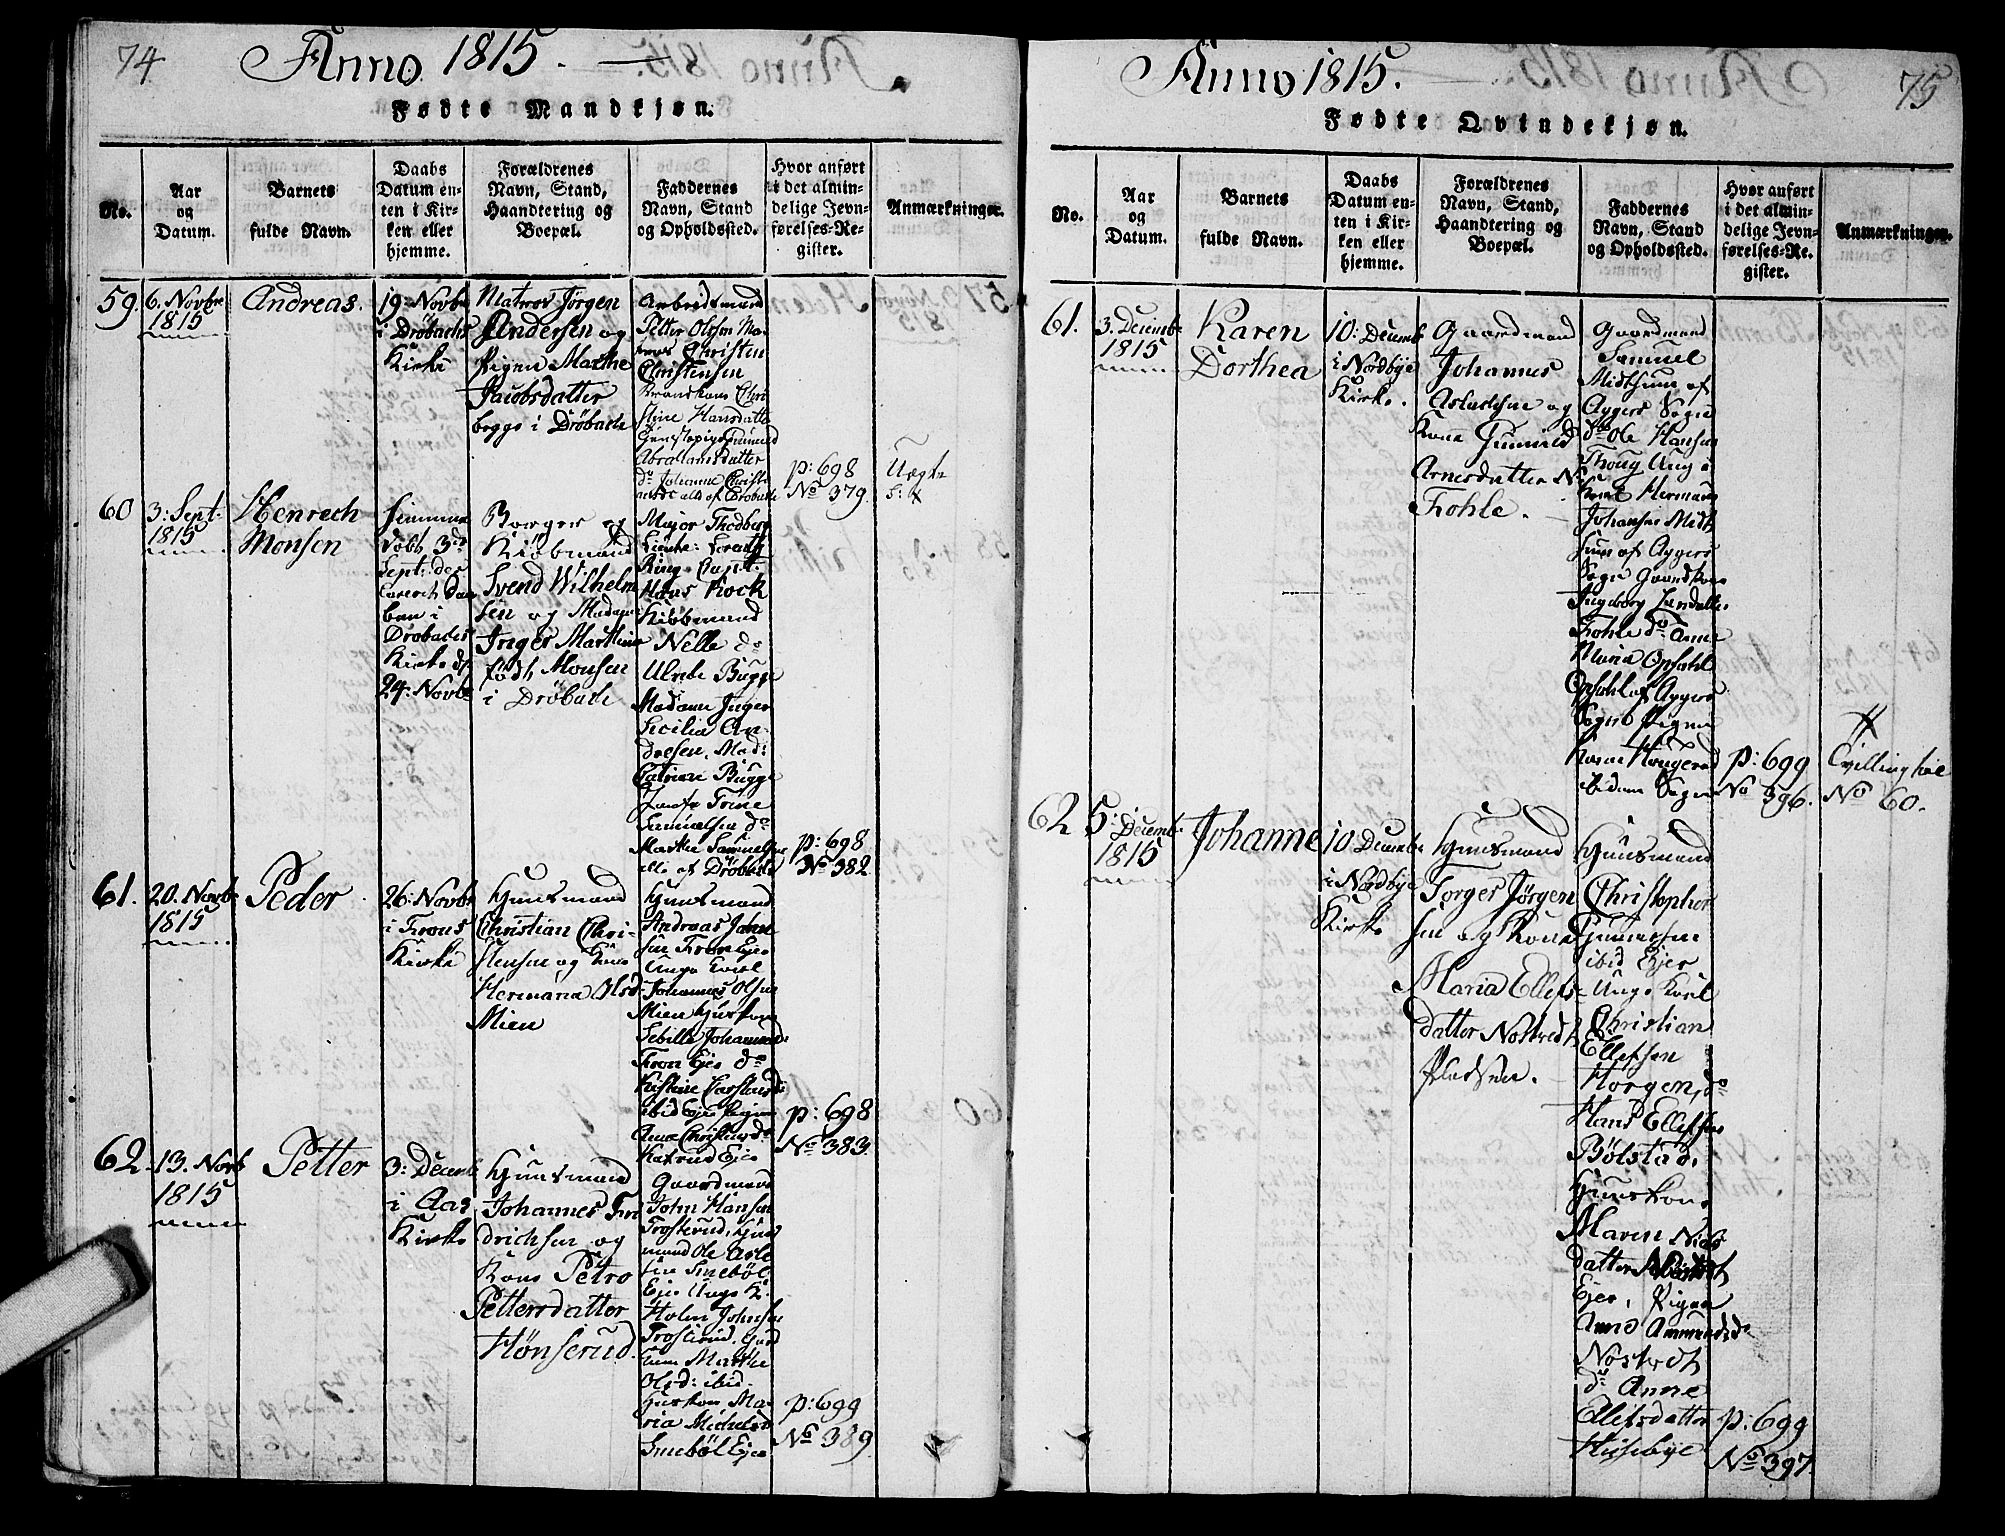 74
Anno 1815.
Fødte Mandkjøn.
No.
Aar
og
Datum.
Barnets
fulde Navn.
Daabs
Datum en-
ten i Kir-
ken eller
hjemme.
Forældrenes
Navn, Stand,
Haandtering og
Boepæl.
Faddernes
Navn, Stand
og Opholdssted.
Hvor anført
i det almin-
delige Jevn-
førelses-Re-
gister.
Anmærkninger.
59.
6. Novbr
1815
Andreas.
19 Novbr
i Drøbachs
Kirke
Matros Jørgen
Andersen og
Pigen Marthe
Jacobsdatter
begge i Drøbach
Arbeidsmand
Petter Olsen Ma-
tros Christen
Christensen
Christine Hansdatter
Abrahamsdatter
do Johanne
alle af Drøbach
p: 698
No 379.
Uægte
60
3: Sept:
1815
Henrech
Monsen
hiemme
døbt 3de
Sept: des
i
Drøbachs
Kirke d:
24: Novbr
Borger og
Kiøbmand
Svend Wilhelm
sen og Madame
Inger Marthine
født Monsen
i Drøbach
Major Thodberg
Ring Capt:
Hans Kock
Kiøbmand
Nelle do
Ulrik Bugge
Madame Inger
Cicilia An-
dresen, Mad:
Catrine Bugge
Trine
Samuelsen do
Marthe Samuelsen
alle af Drøbach
p: 698
No 382
61.
20. Novbr
1815
Peder
26: Novbr
i Frons
Kirke
Huusmand
Christian Chri-
stensen og Kone
Hermana Olsd
Mien
Huusmand
Andreas
Fron Eje
Unge Karl
Johannes Olsen
Mien Huuskone
Sebille Johannesd
Fron Eje do
ibid Eje Pigen
Anne Christensd
Eje
p: 698
No 383
62
13. Novb
1815
Petter
3: Decemb
i Aas
Kirke
Huusmand
Johannes Fri
drichsen og
Kone Petro
Pettersdatter
Hønserud
Gaardmand
John Hansen
Frosterud, Huus
mand Ole Asle
sen Smebøl
Eje Unge K.
Holm Johnsen
Frosterud, Gaard
kone Marthe
Olsd: ibid.
Huuskone Ma
ria Michelsd
Smebøl Eje
p: 699
No 389
Anno 1815.
75
Fødte Qvindekjøn.
No.
Aar
og
Datum.
Barnets
fulde Navn.
Daabs
Datum en-
ten i Kir-
ken eller
hjemme.
Forældrenes
Navn, Stand,
Haandtering og
Boepæl.
Faddernes
Navn, Stand
og Opholdssted.
Hvor anført
i det almin-
delige Jevn-
førelses-Re-
gister.
Anmærkninger.
61.
3. Decemb
1815
Karen
Dorthea
10: Decemb
i Nordbye
Kirke.
Gaardmand
Johannes
Aslachsen og
Kone Gunnild
Arnesdatter N
Frohle.
Gaardmand
Samuel
Midtsum af
Aggers Sogn
do Ole Hansen
Unge
Karl Herman
Johansen Midt
sum af Aggers
Sogn Gaardkone
Ingeborg
Frohle do Anne
Maria Opsahl
Opsahl af Aggers
Sogn Pigen
Karen Haugerud
ibidem Sogn
p: 699
No 396.
Tvilling til
No 60.
62
5:
Decemb.
1815
Johanne
10 Decemb
i Nordbye
Kirke
Huusmand
Torger Jørgen
sen og Kone
Maria Ellefs-
datter Nostvedt
Pladsen.
Huusmand
Christopher
Gunnersen
ibid Ejer
Unge Karl
Christian
Ellefsen
Horgen, do
Hans Ellefsen
Bølstad,
Huuskone
Maren Niels
datter Nostvedt
Ejer, Pigen
Anne Ammundsd
Nøstvedt
do Anne
Ellefsdatter
Husebye
p: 699
No 397.